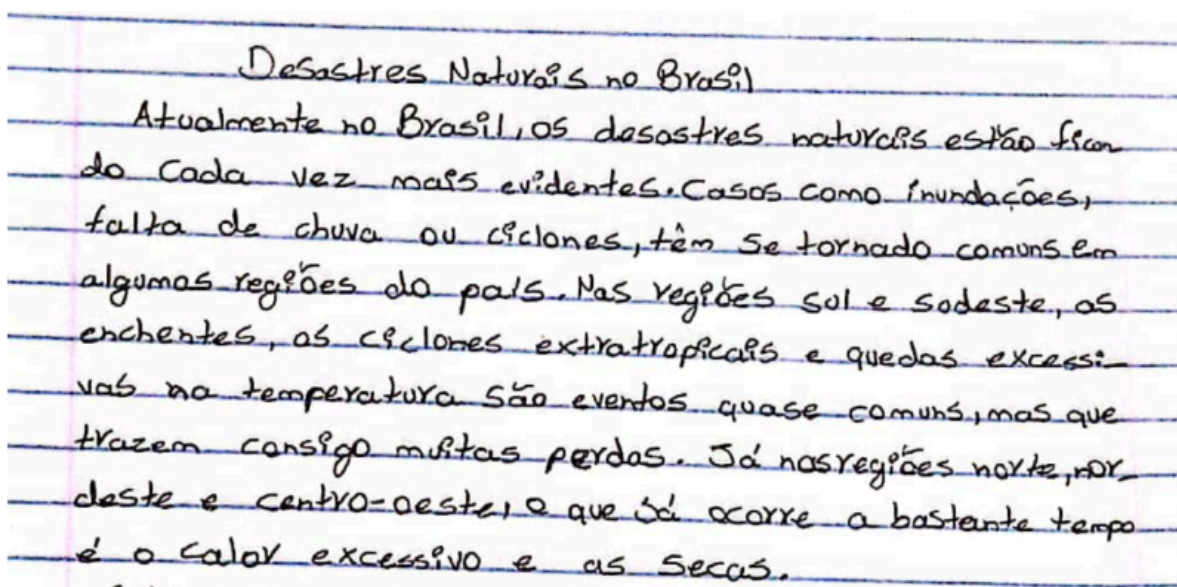 Desastres Naturais no Brasil
Atualmente no Brasil, os desastres naturais estão fican
do cada vez mais evidentes. Casos como inundações,
falta de chuva ou ciclones, têm se tornado comuns em
algumas regiões do país. Nas regiões sul e sudeste, as
enchentes, os ciclones extratropicais e quedas excessi-
vas na temperatura são eventos quase comuns, mas que
trazem consigo muitas perdas. Já nas regiões norte, nor-
deste e centro-oeste, o que já ocorre a bastante tempo
é o calor excessivo e as secas.